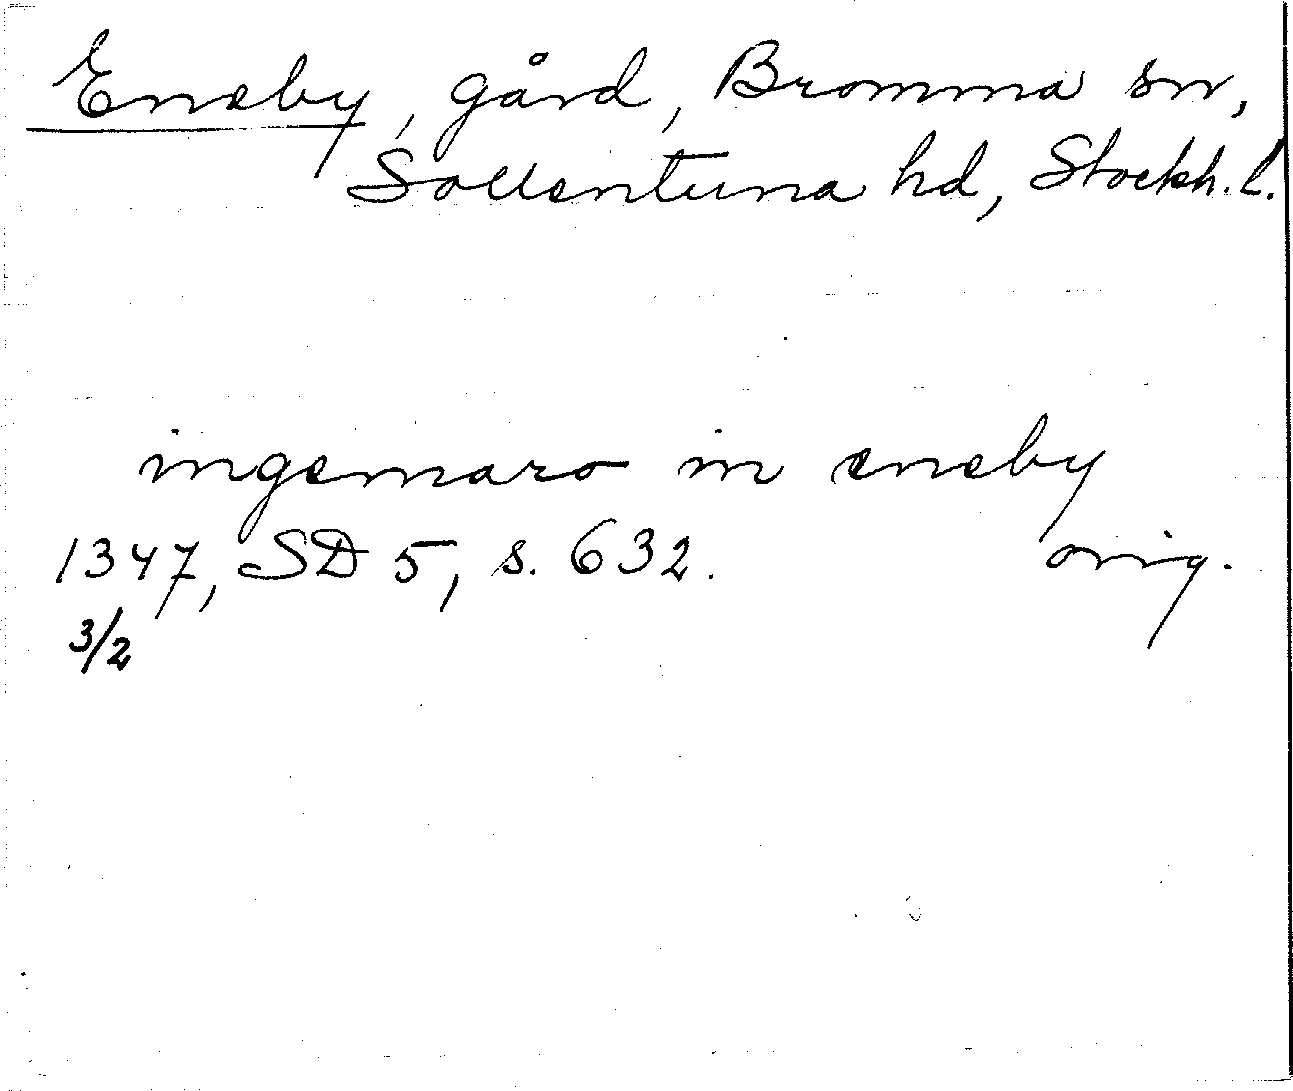 Eneby, gård, Bromma sn,
Sollentuna hd, Stockh. l.
ingemaro in eneby
1347, SD 5, s. 632. orig.
3/2